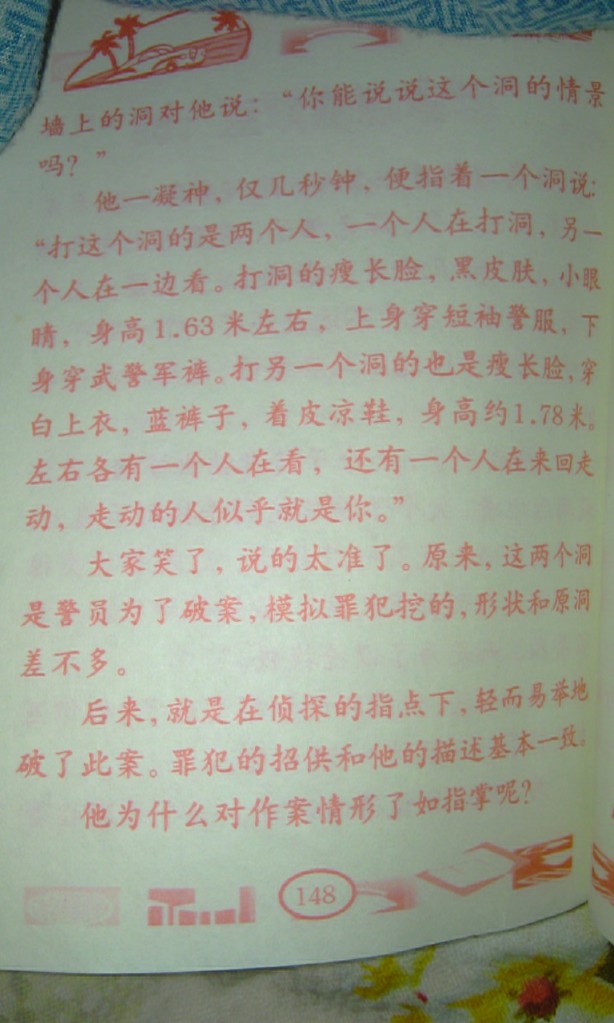 墙上的洞对他说：“你能说说这个洞的情景
吗？”
他一凝神，仅几秒钟，便指着一个洞说：
“打这个洞的是两个人，一个人在打洞，另一
个人在一边看。打洞的瘦长脸，黑皮肤，小眼
睛，身高1.63米左右，上身穿短袖警服，下
身穿武警军裤。打另一个洞的也是瘦长脸，穿
白上衣，蓝裤子，着皮凉鞋，身高约1.78米。
左右各有一个人在看，还有一个人在来回走
动，走动的人似乎就是你。”
大家笑了，说的太准了。原来，这两个洞
是警员为了破案，模拟罪犯挖的，形状和原洞
差不多。
后来，就是在侦探的指点下，轻而易举地
破了此案。罪犯的招供和他的描述基本一致。
他为什么对作案情形了如指掌呢？
148